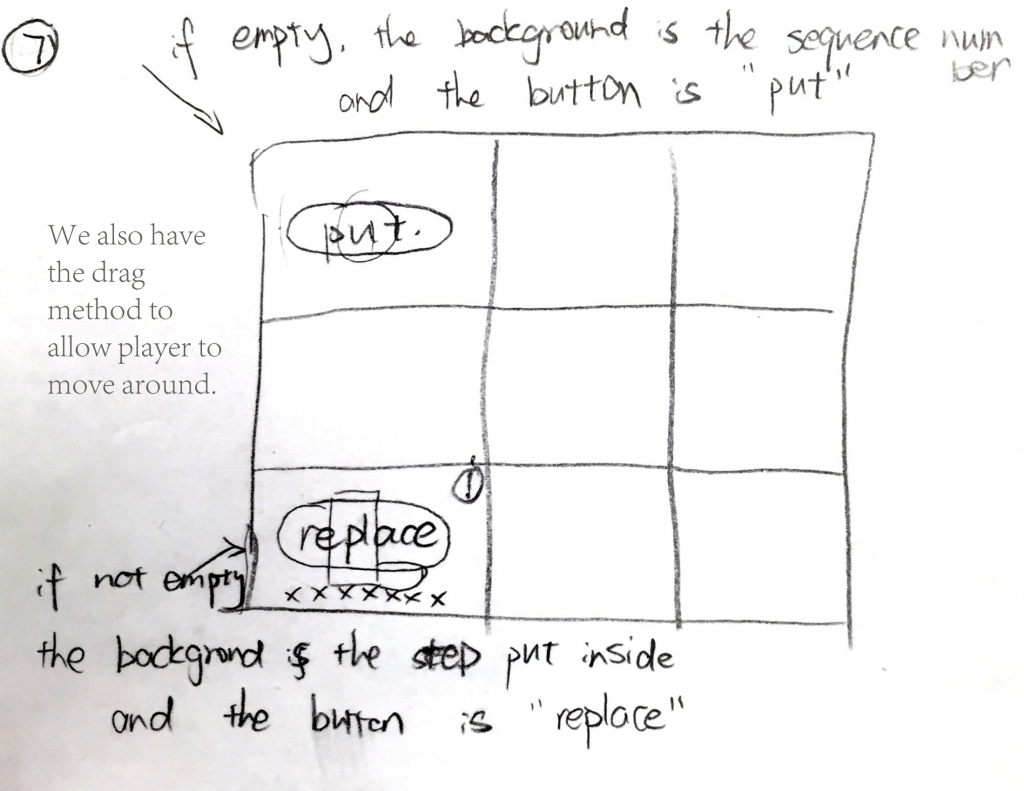 7
if empty, the background is the sequence num
ber
and the button is "put"
put.
We also have
the drag
method to
allow player to
move around.
1
replace
x x x x x x x
if not empty
the backgrond is the step put inside
and the button is "replace"